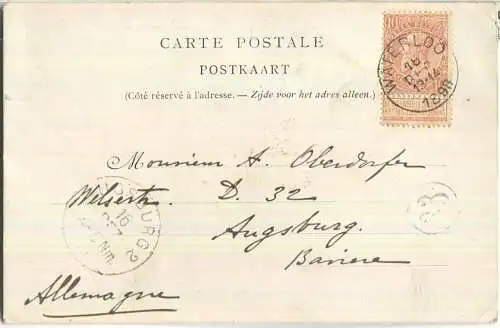 CARTE POSTALE
POSTKAART
(Côté réservé à l'adresse. — Zijde voor het adres alleen.)
10
WATERLOO
16
12-14
1898
Monsieur A. Oberdorfer
Welserstr. D. 32
Augsburg.
Baviere
Allemagne
SBURG 2
16
Nm.